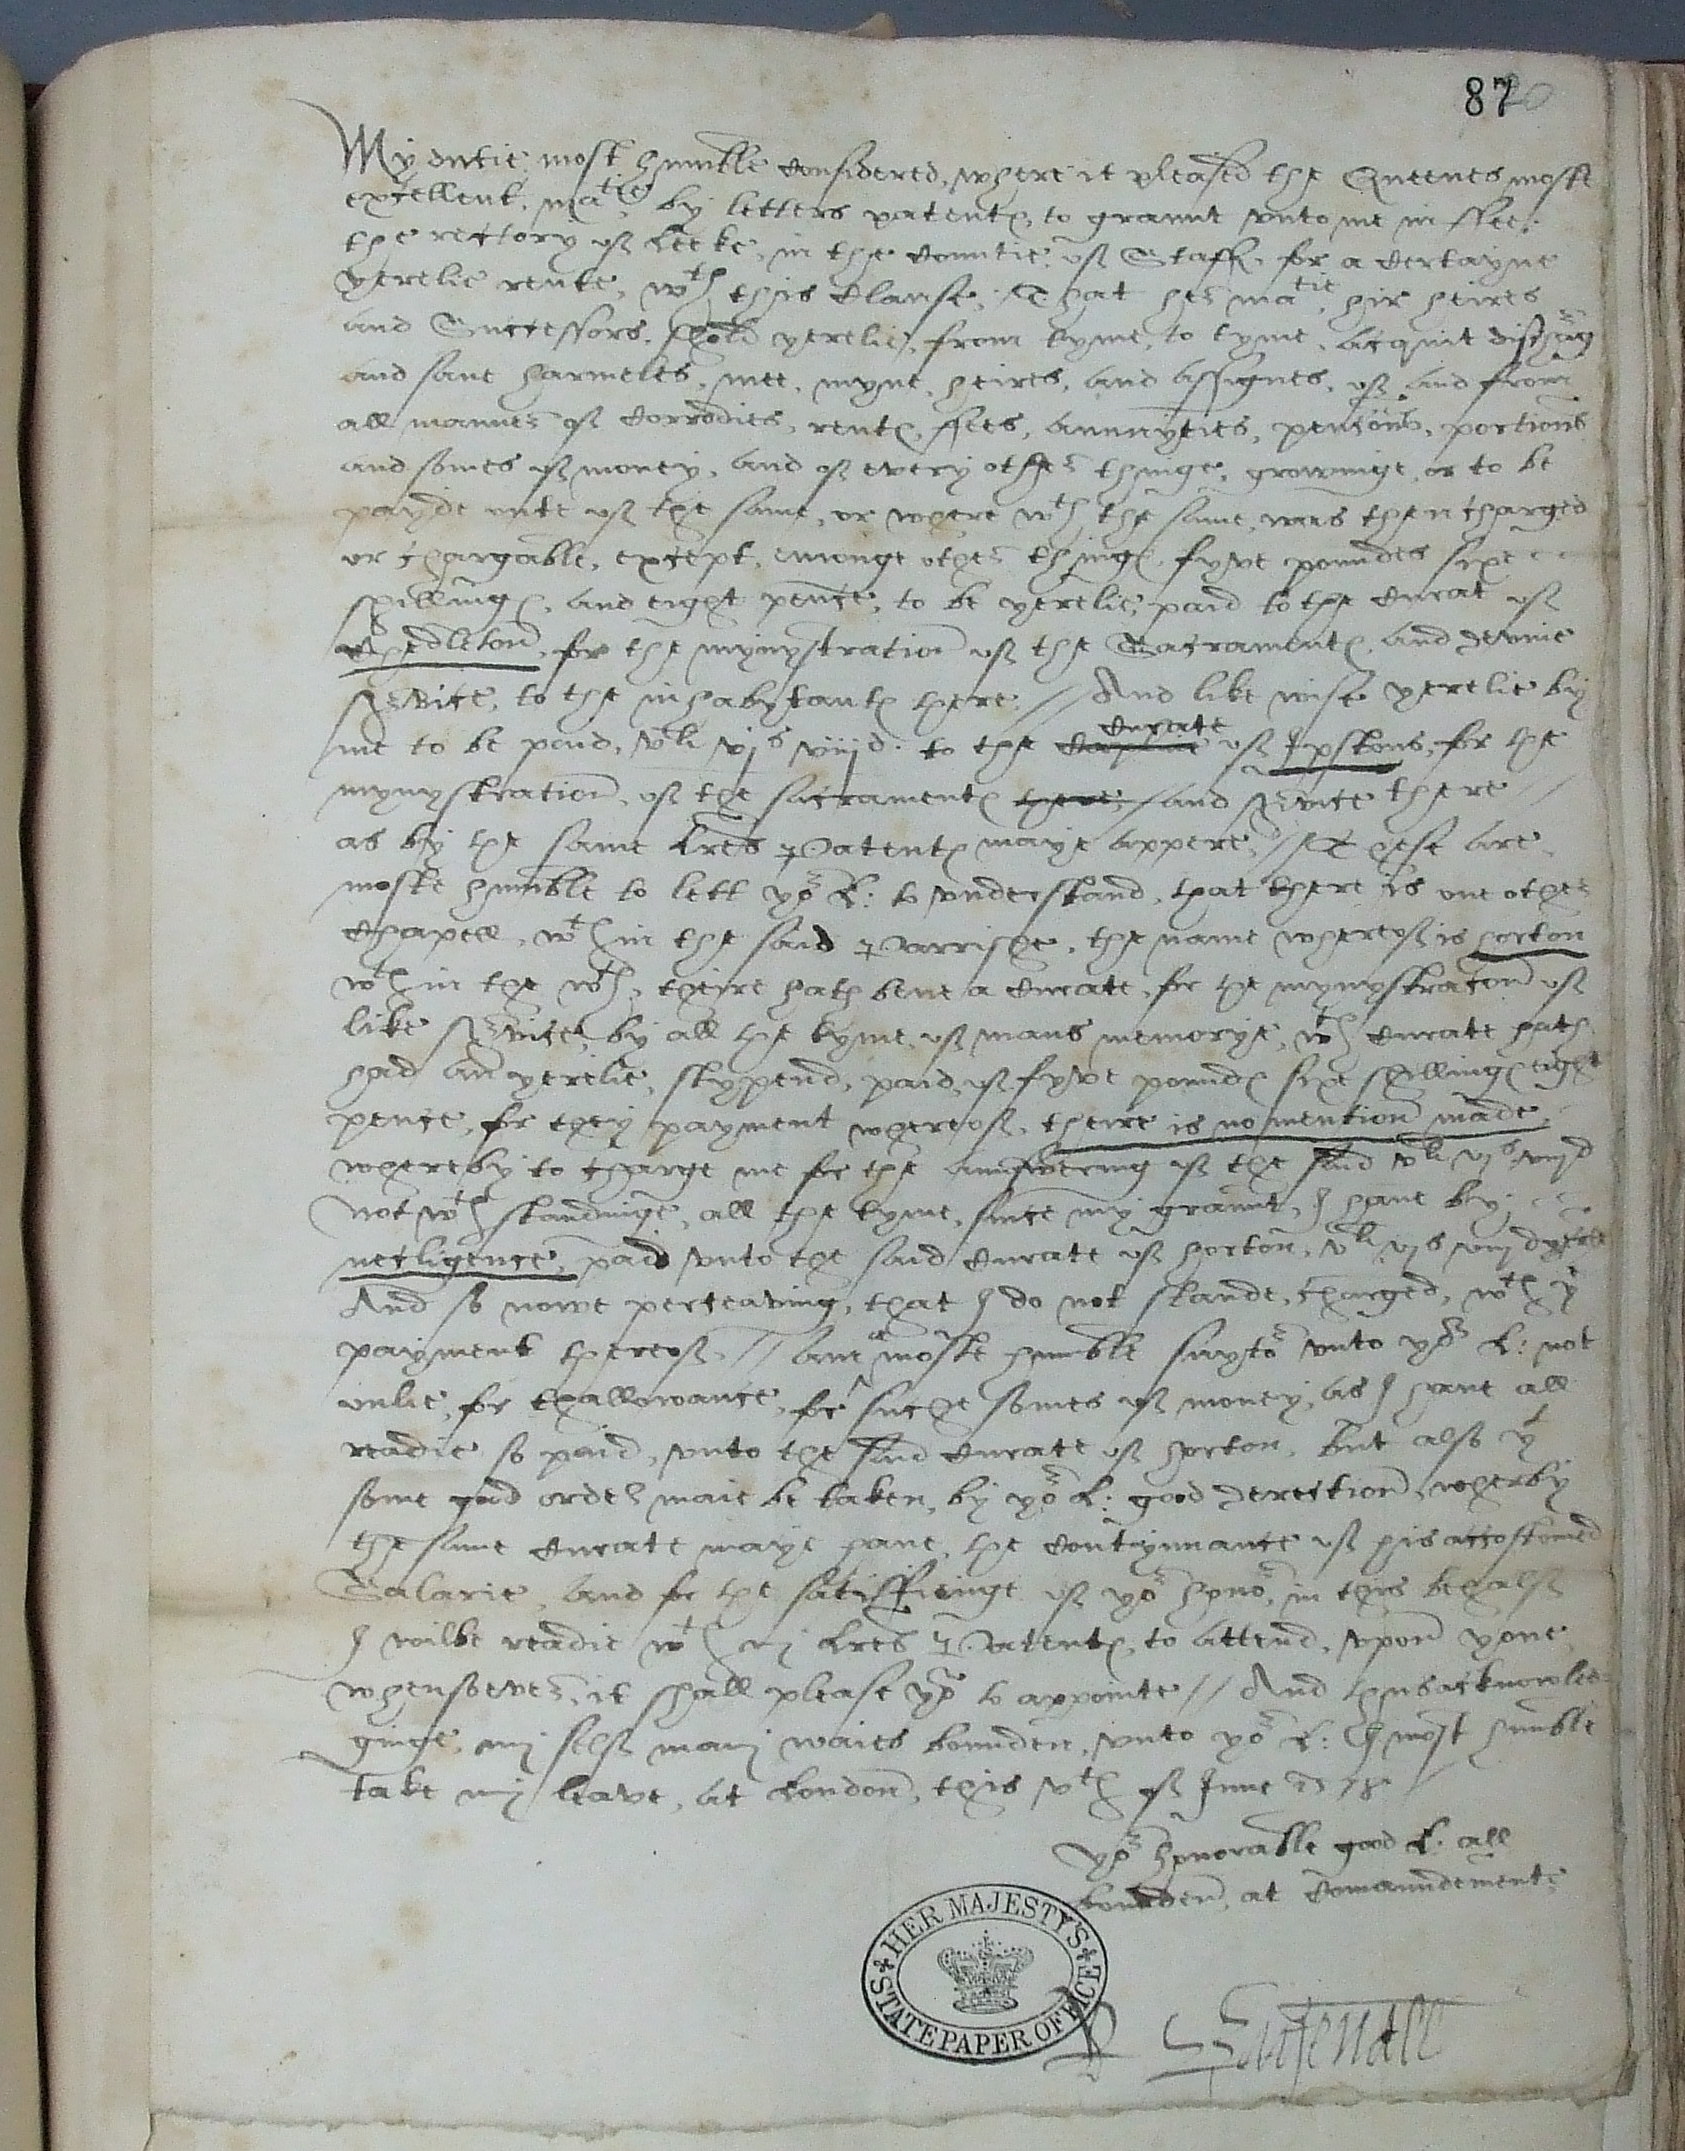 87
My dutie most humble considered, where it pleased the Queenes moste
excellent matie, by letters patentes, to graunt unto me in ffee,
the rectory of Leeke, in the countie of Staff, for a certayne
yerelie rente, wth this clause, That her matie, hir heires
and Successors, shold yerelie, from tyme, to tyme, acquit discharg
and save harmeles, mee, myne, heires, and assignes, of and from
all manner of corrodies, rentes, ffees, annuyties, pencons, portions
and somes of money, and of every other thinge, growinge, or to be
payde oute of the same, or where wth the same, was then charged
or chargable, except, emonge other thinges, fyve poundes sixe
shillinges, and eight pence, to be yerelie, paid to the Curat of
Chedleton, for the mynystration of the Sacramentes, and devine
service, to the inhabytantes there, // And like wise yerelie by
me to be paid, vli vjs viijd. to the Curate of Ipstons, for the
mynystration, of the sacramentes there, / and service there //
as by the same Lres Patentes maye appere, // These are
moste humble to lett yor L: to understand, that there is one other
Chapell, wthin the said Parrishe, the name whereof is horton
wthin the wch, theire hath bene a Curate, for the mynystracon of
like service, by all the tyme, of mans memorye, wch Curate hath
had an yerelie, stypend, paid, of fyve poundes sixe shillinges eight
pence, for they payment whereof, theire is no mention made,
whereby to charge me for the aunswering of the said vli vjs viijd
Not wthstandinge, all the tyme, since my graunt, I have by
necligence, paid unto the said Curate of horton, vli vjs viijd yerelie
And so nowe perceaving, that I do not stande, charged, wth ye
payment thereof, // ame a moste humble suytor unto yor L: not
onlie, for thallowance, for suche somes of money, as I have all
readie so paid, unto the said Curate of horton, but also yt
some good order maie be taken, by yor L: good derection, wherby
the same Curate maye have, the contynuance of his accostomed
Salarie, and for the satisffieinge of yor honor, in this behalf
I wilbe readie wth my Lres Patentes, to attend, upon youe
whensoever, it shall please yor to appointe // And thus acknowled-
ginge, my self many waies bounden, unto yor L: I most humble
take my leave, at London, this vth of June
yor honorable good L: all
bounden, at Comaundemente
HER MAJESTY'S STATE PAPER OFFICE